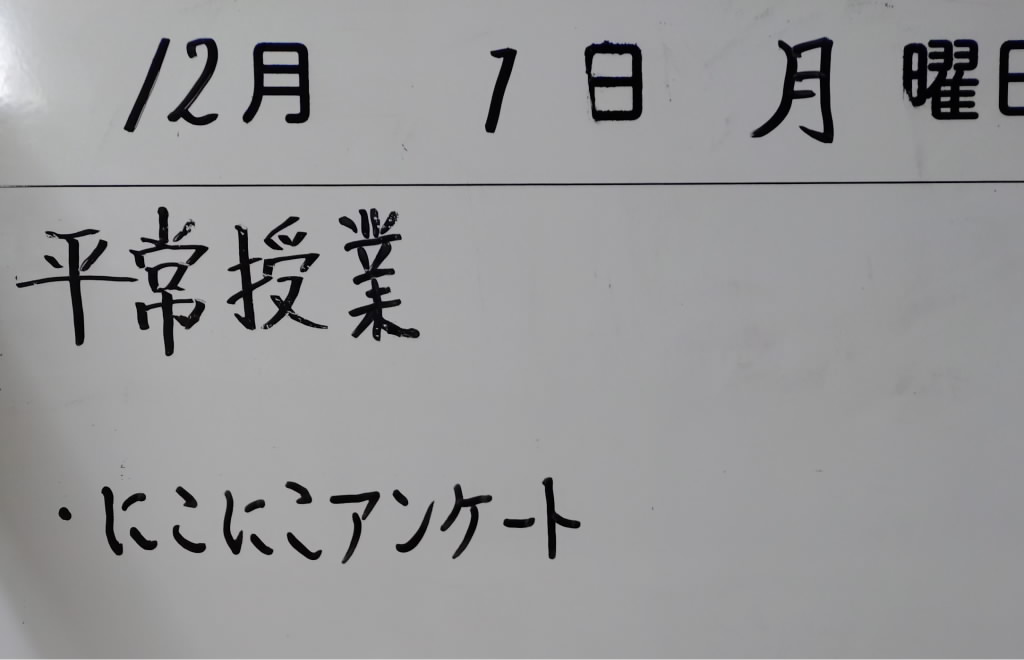 12月 1日 月曜日
平常授業
・にこにこアンケート